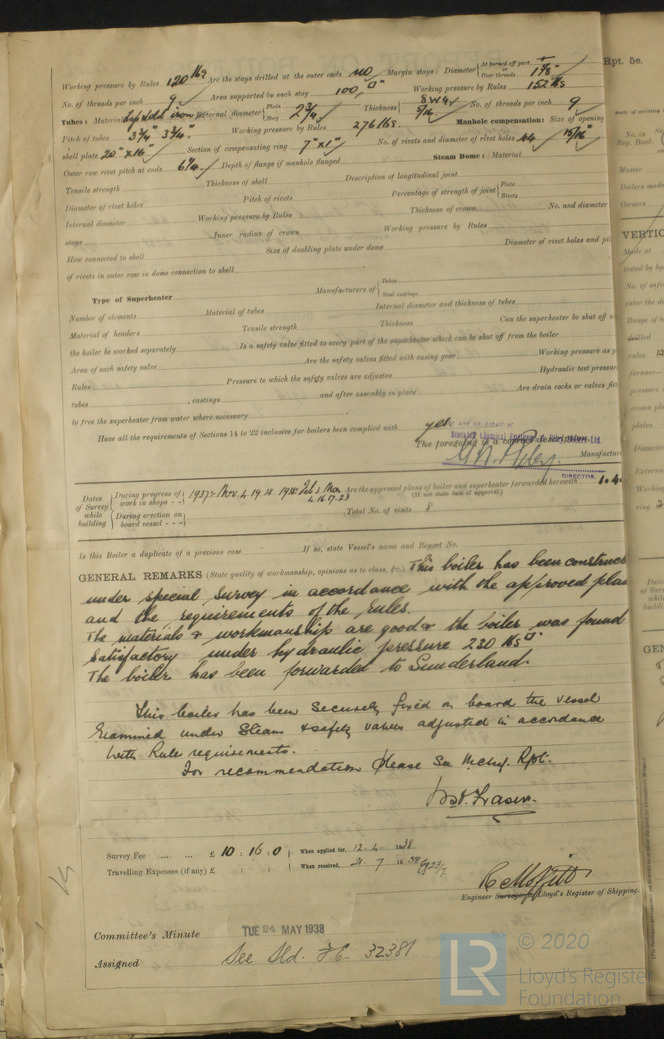 Working pressure by Rules 120 lbs Are the stays drilled at the outer ends no Margin stays: Diameter { At turned off part, or Over threads 1 7/8"
No. of threads per inch 9 Area supported by each stay 100 □" Working pressure by Rules 152 lbs
Tubes: Material Lap weld iron External diameter { Plain Stay 2 3/4 Thickness { 8 WG 5/16 No. of threads per inch 9
Pitch of tubes 3 3/4" 3 3/4" Working pressure by Rules 276 lbs. Manhole compensation: Size of opening
shell plate 20" x 16" Section of compensating ring 7" x 1" No. of rivets and diameter of rivet holes 44 15/16"
Outer row rivet pitch at ends 6 1/4 Depth of flange if manhole flanged Steam Dome: Material
Tensile strength Thickness of shell Description of longitudinal joint
Diameter of rivet holes Pitch of rivets Percentage of strength of joint { Plate Rivets
Internal diameter Working pressure by Rules Thickness of crown No. and diameter
stays Inner radius of crown Working pressure by Rules
How connected to shell Size of doubling plate under dome Diameter of rivet holes and pi
of rivets in outer row in dome connection to shell
Type of Superheater Manufacturers of { Tubes Steel castings
Number of elements Material of tubes Internal diameter and thickness of tubes
Material of headers Tensile strength Thickness Can the superheater be shut off
the boiler be worked separately Is a safety valve fitted to every part of the superheater which can be shut off from the boiler
Area of each safety valve Are the safety valves fitted with easing gear Working pressure as p
Rules Pressure to which the safety valves are adjusted Hydraulic test pressure
tubes , castings and after assembly in place Are drain cocks or valves fit
to free the superheater from water where necessary
Have all the requirements of Sections 14 to 22 inclusive for boilers been complied with yes
The foregoing is a correct description,
Manufactur
DIRECTOR.
Dates of Survey while building { During progress of work in shops - - 1937: Nov. 4 19 1938 Feb 3 Mar 4. 16. 17. 23 Are the approved plans of boiler and superheater forwarded herewith 1. 4
(If not state date of approval.)
During erection on board vessel - - - Total No. of visits 8
Is this Boiler a duplicate of a previous case If so, state Vessel's name and Report No.
GENERAL REMARKS (State quality of workmanship, opinions as to class, &c.) This boiler has been construc
under special survey in accordance with the approved plan
and the requirements of the rules.
The materials & workmanship are good & the boiler was found
satisfactory under hydraulic pressure 230 lbs □"
The boiler has been forwarded to Sunderland.
This boiler has been securely fixed on board the vessel
Examined under Steam & safety valves adjusted in accordance
with Rule requirements.
For recommendation please see Mchy. Rpt.
Fraser.
Survey Fee ... ... £ 10 : 16 : 0 When applied for, 12. 4. 1938
Travelling Expenses (if any) £ : : When received, 21. 7 1938
R C Moffitt
Engineer Surveyor to Lloyd's Register of Shipping
Committee's Minute TUE 24 MAY 1938
Assigned See Sld. F.E. 32381
Rpt. 5c.
VERTIC
LR © 2020
Lloyd's Register
Foundation